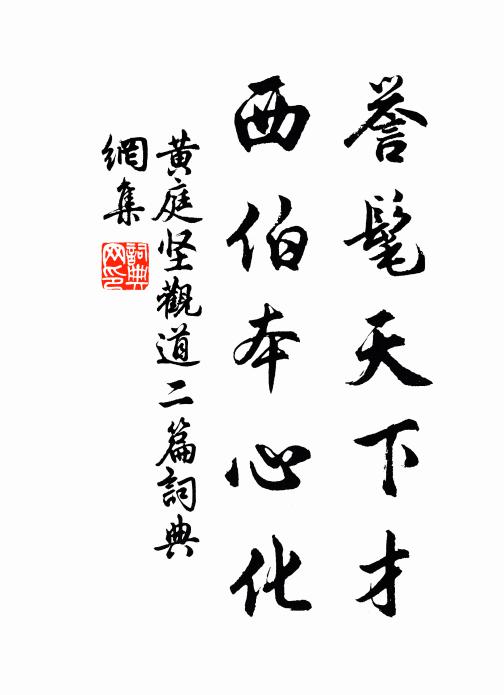 誉髦天下才
西伯本心化
黄庭坚觀道二篇詞典
網集
詞典
网印